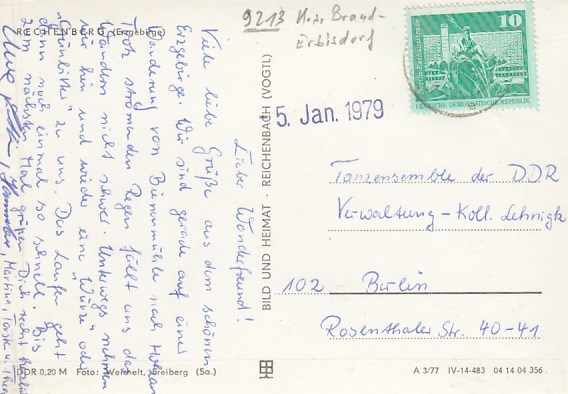 RECHENBERG (Erzgebirge)
9213 Kreis Brand-
Erbisdorf
10
DEUTSCHE DEMOKRATISCHE REPUBLIK
5. Jan. 1979
Lieber Wanderfreund!
Viele liebe Grüße aus dem schönen
Erzgebirge. Wir sind gerade auf einer
Wanderung von Bienenmühle nach
Trotz strömenden Regen fällt uns das
Wandern nicht schwer. Unterwegs nehmen
wir hin und wieder eine "Würze" oder
"Grünbitter" zu uns. Das Laufen geht
dann noch einmal so schnell. Bis
zum nächsten Mal grüßen Dich recht herzlich
Martina,
Tanzensemble der DDR
Verwaltung - Koll. Lehnigk
102 Berlin
Rosenthaler Str. 40-41
BILD UND HEIMAT · REICHENBACH (VOGTL)
DDR 0,20 M Foto: Weinhelt, Freiberg (Sa.)
A 3/77 IV-14-483 04 14 04 356